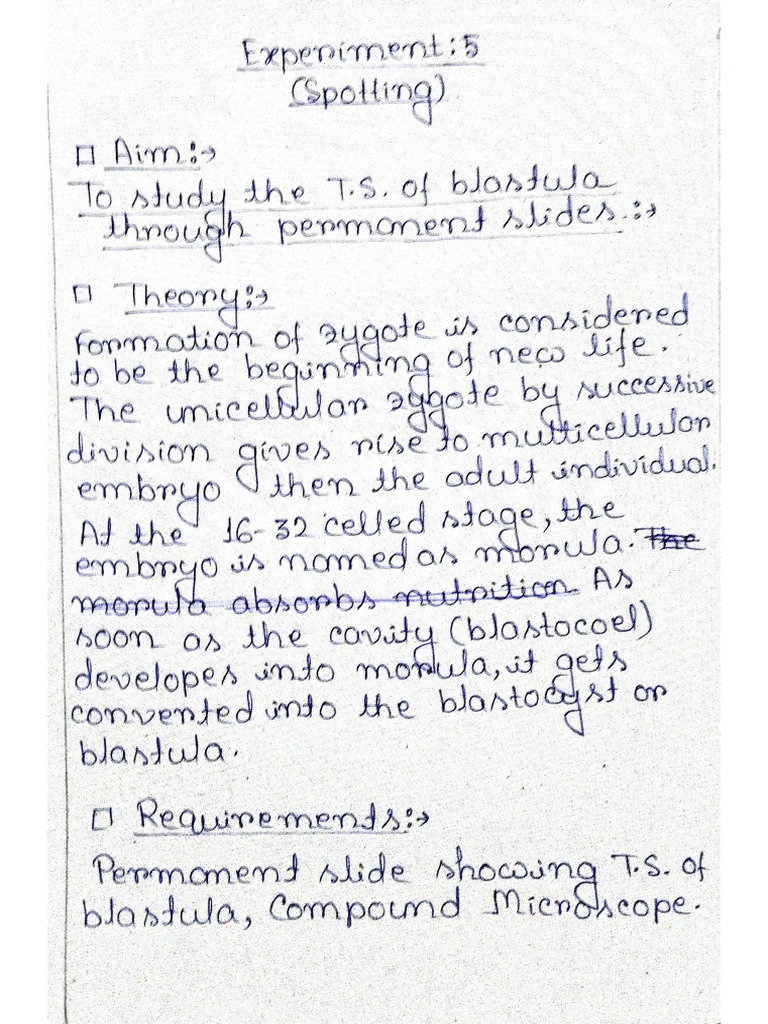 Experiment:5
(Spotting)
□ Aim:→
To study the T.S. of blastula
through permanent slides.:→
□ Theory:→
Formation of zygote is considered
to be the beginning of new life.
The unicellular zygote by successive
division gives rise to multicellular
embryo then the adult individual.
At the 16-32 celled stage, the
embryo is named as morula. The
morula absorbs nutrition. As
soon as the cavity (blastocoel)
developes into morula, it gets
converted into the blastocyst or
blastula.
□ Requirements:→
Permanent slide showing T.S. of
blastula, Compound Microscope.